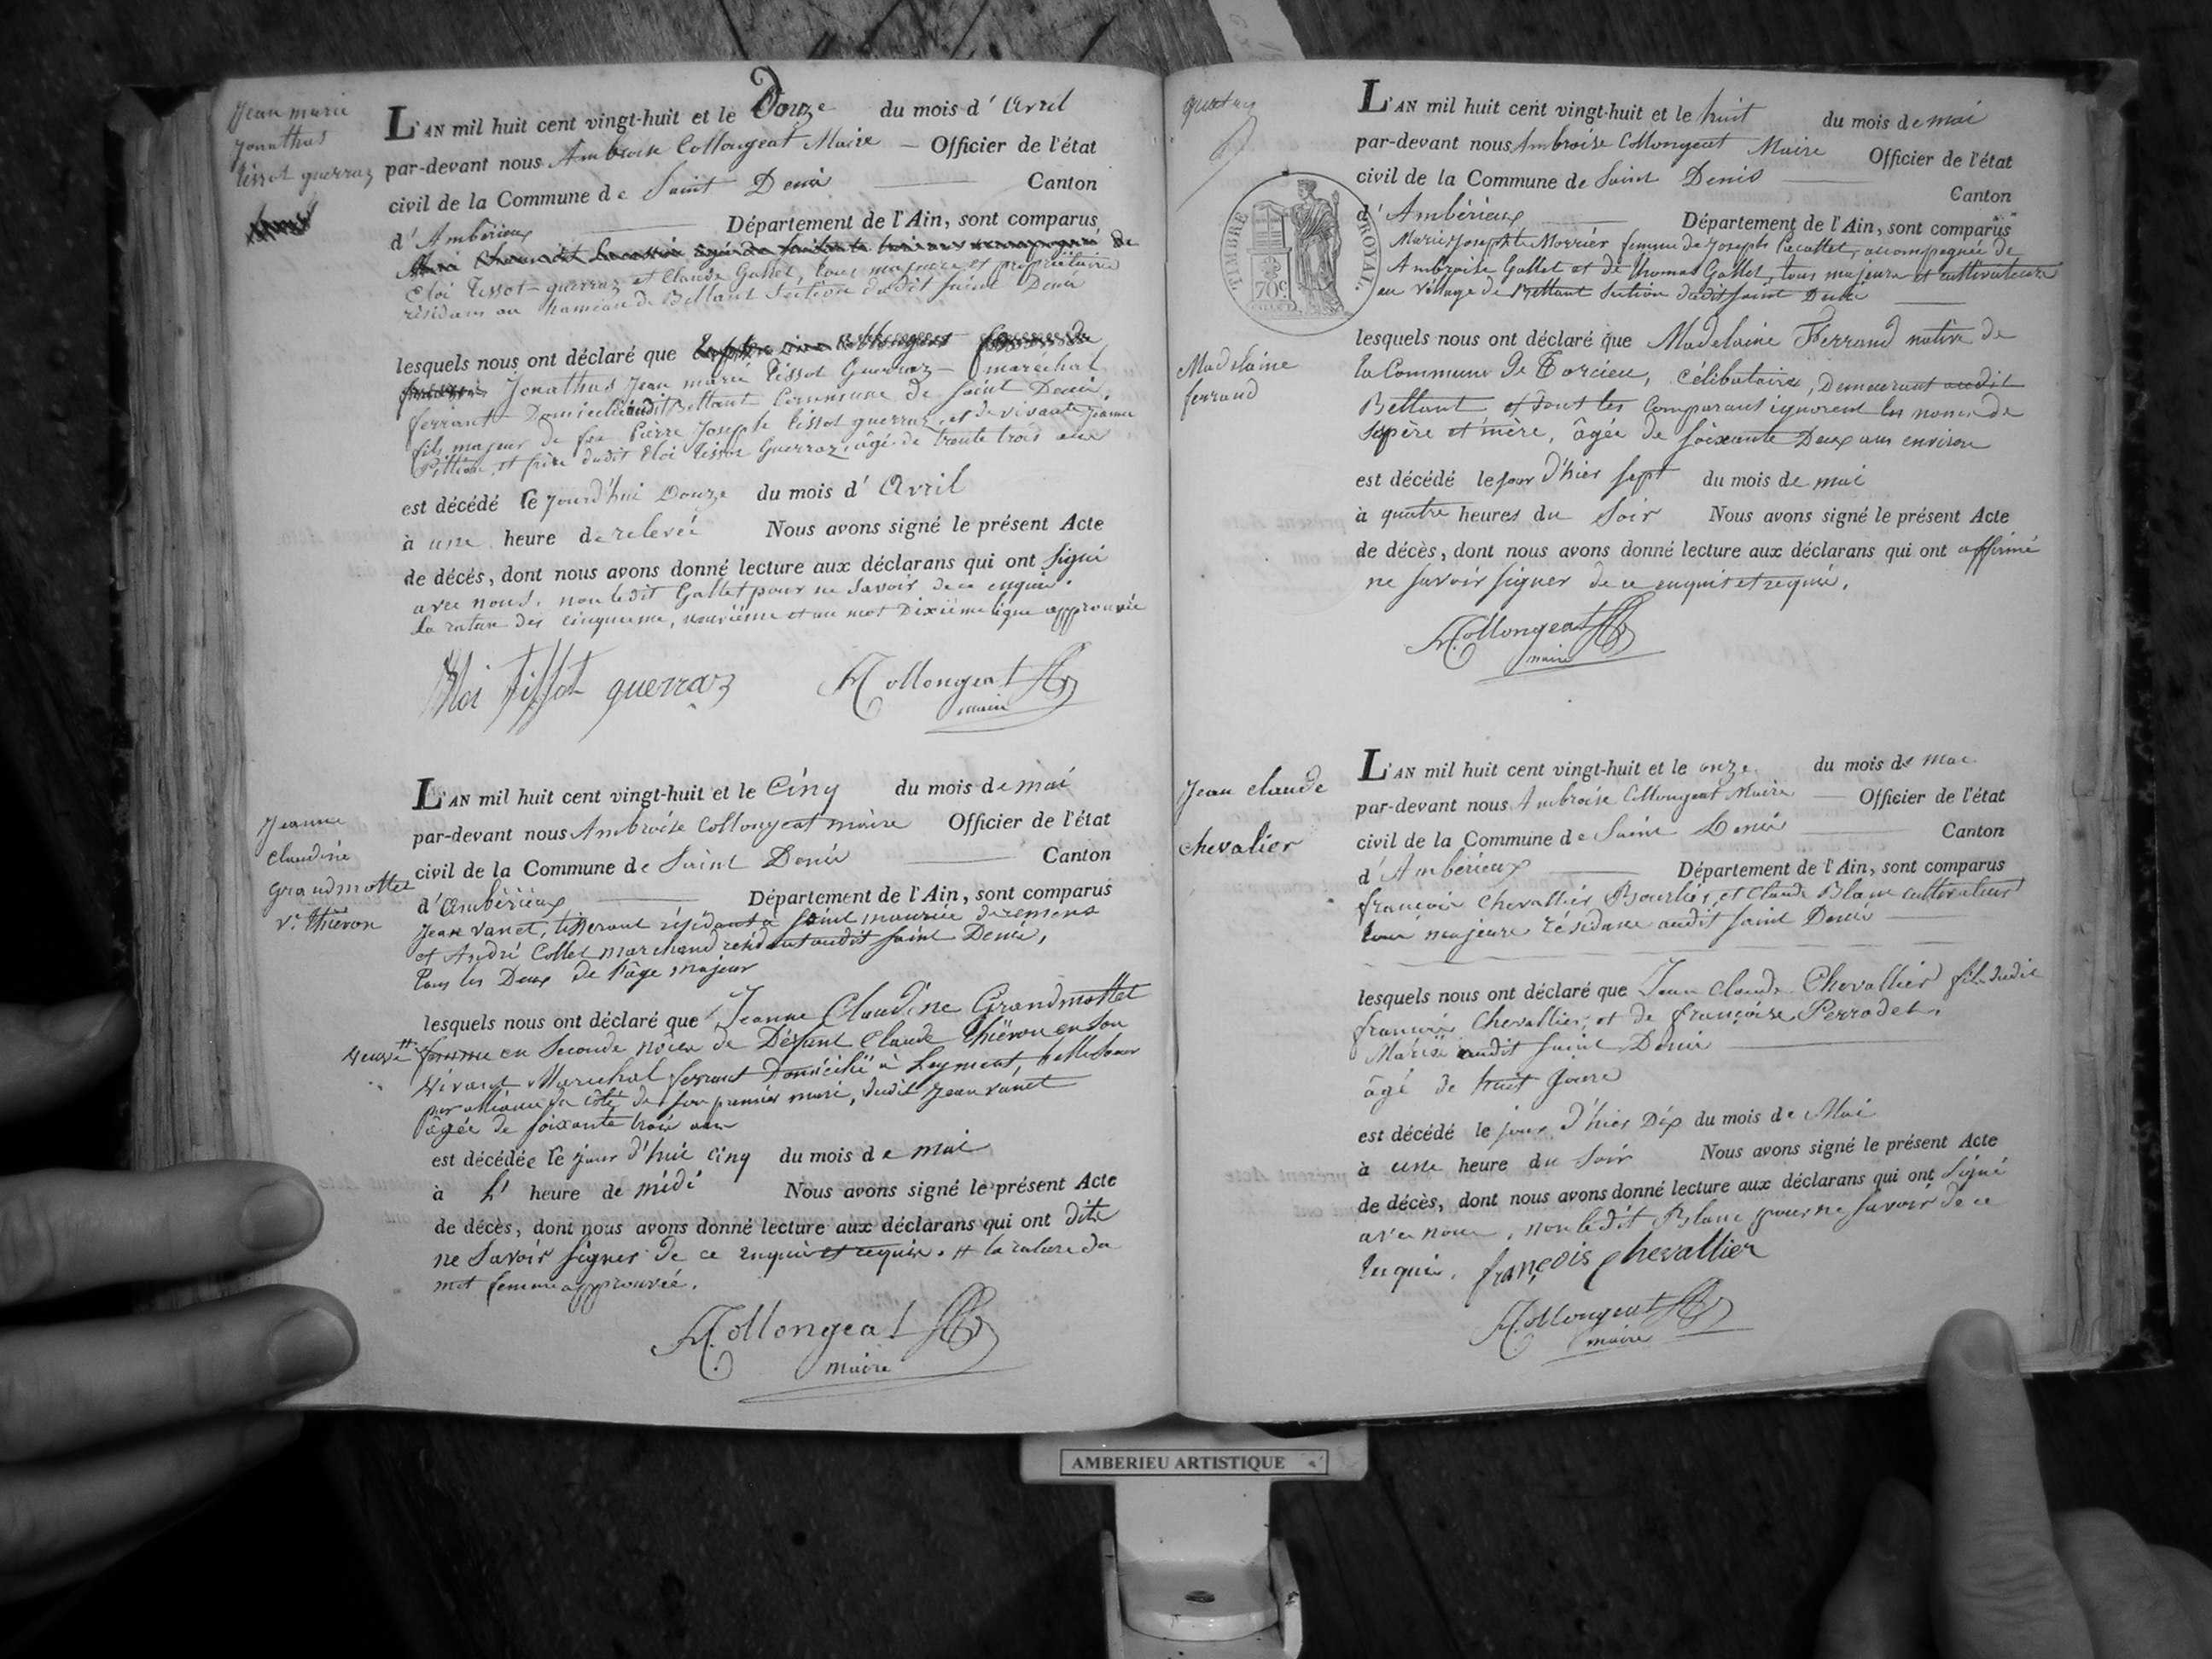 Jean marie
Jonathas
tissot guerraz
L'AN mil huit cent vingt-huit et le Douze du mois d' Avril
par-devant nous Ambroise Collongeat Maire — Officier de l'état
civil de la Commune de Saint Denis Canton
d' Ambérieux Département de l'Ain, sont comparus
de
Eloi tissot-guerraz et Claude Gallet, tous majeurs et propriétaires
résidans au hameau de Bettant Section dudit Saint Denis
lesquels nous ont déclaré que
Jonathas Jean marie tissot Guerraz maréchal
ferrant Domicilié audit Bettant Commune de Saint Denis,
fils majeur de feu Pierre Joseph tissot guerraz, et de vivante Jeanne
et frère dudit Eloi tissot Guerraz, âgé de trente trois ans
est décédé le jourd'hui Douze du mois d' Avril
à une heure de relevée Nous avons signé le présent Acte
de décès, dont nous avons donné lecture aux déclarans qui ont signé
avec nous, non ledit Gallet pour ne savoir de ce enquis.
La rature des cinquième, neuvième et au mot Dixième ligne approuvée
Eloi tissot guerraz
A Collongeat
maire
Jeanne
Claudine
grandmottet
Ve. thiévon
L'AN mil huit cent vingt-huit et le Cinq du mois de mai
par-devant nous Ambroise Collongeat maire Officier de l'état
civil de la Commune de Saint Denis Canton
d' Ambérieux Département de l'Ain, sont comparus
Jean vanet, tisserant résidant à Saint maurice de remens
et André Collet marchand résidant audit Saint Denis,
tous les Deux de l'âge majeur
lesquels nous ont déclaré que Jeanne Claudine Grandmottet
veuve # femme en Seconde noces de Défunt Claude thiévon en Son
vivant Maréchal ferrant Domicilié à Leyment, belle soeur
par alliance du côté de son premier mari, dudit Jean vanet
âgée de soixante trois ans
est décédée le jour d'hui cinq du mois de mai
à L' heure de midi Nous avons signé le présent Acte
de décès, dont nous avons donné lecture aux déclarans qui ont dit
ne Savoir signer de ce enquis et requis. # la rature du
mot femme approuvée.
A Collongeat
maire
quatre
TIMBRE ROYAL.
70c
Madelaine
ferrand
L'AN mil huit cent vingt-huit et le huit du mois de mai
par-devant nous Ambroise Collongeat Maire Officier de l'état
civil de la Commune de Saint Denis Canton
d' Ambérieux Département de l'Ain, sont comparus
Marie Josephte Morrier femme de Joseph accompagnée de
Ambroise Gallet et de thomas Gallet, tous majeurs et cultivateurs
au village de Bettant Section dudit Saint Denis
lesquels nous ont déclaré que Madelaine Ferrand native de
la Commune de Torcieu, Célibataire, Demeurant audit
Bettant et dont les comparans ignorent les noms de
Ses père et mère, âgée de soixante Deux ans environ
est décédé le jour d'hier sept du mois de mai
à quatre heures du Soir Nous avons signé le présent Acte
de décès, dont nous avons donné lecture aux déclarans qui ont affirmé
ne savoir signer de ce enquis et requis.
A Collongeat
maire
Jean claude
chevalier
L'AN mil huit cent vingt-huit et le onze du mois de mai
par-devant nous Ambroise Collongeat Maire Officier de l'état
civil de la Commune de Saint Denis Canton
d' Ambérieux Département de l'Ain, sont comparus
françois Chevallier et Claude Blanc cultivateurs
tous majeurs résidans audit Saint Denis
lesquels nous ont déclaré que Jean Claude Chevallier fils dudit
françois Chevallier, et de françoise Perrodet,
Mariés audit Saint Denis
âgé de huit jours
est décédé le jour d'hier Dix du mois de Mai
à une heure du Soir Nous avons signé le présent Acte
de décès, dont nous avons donné lecture aux déclarans qui ont Signé
avec nous, non ledit Blanc pour ne savoir de ce
enquis. françois Chevallier
A Collongeat
maire
AMBERIEU ARTISTIQUE